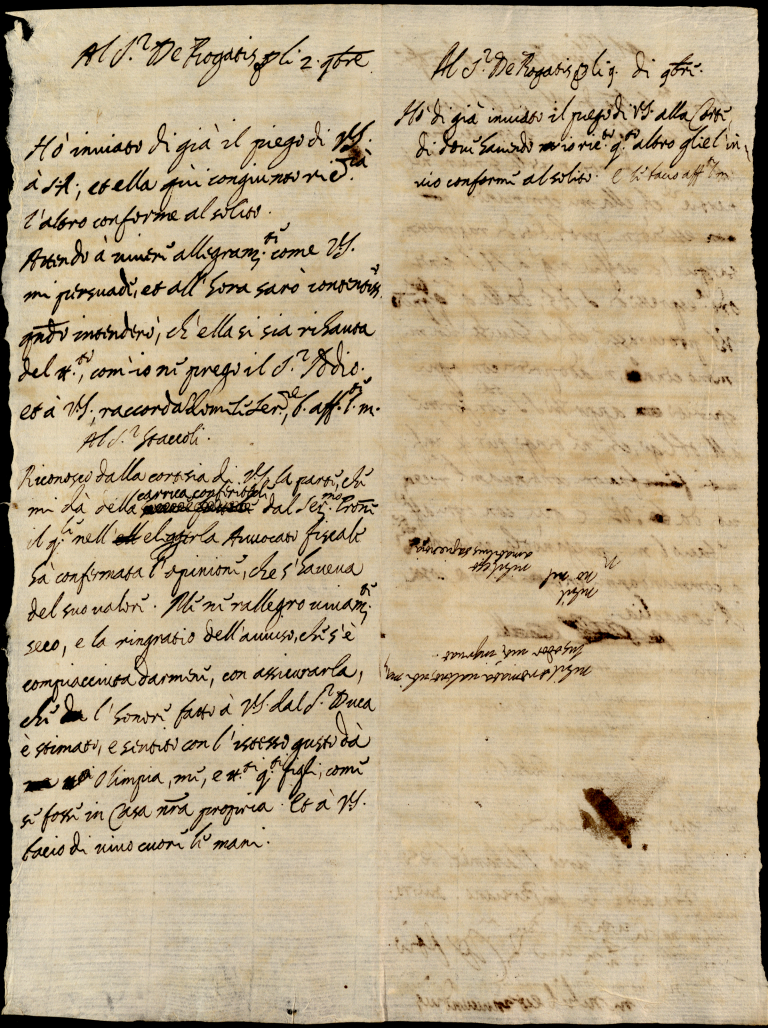 Al S.r De Rogatis p li 2. 9bre
Hò inviato di già il piego di VS.
à S.A; et ella qui congiunto
l'altro conforme al solito.
Attendo à viver allegram.te come VS.
mi persuade, et all'hora sarò contentiss.o
qndo intenderò, ch'ella si sia rihavuta
del tt.o, com'io ne prego il S.r Iddio.
et à VS. raccordandomi b. aff.te l. m.
Al S.r Staccoli.
Riconosco dalla cortesia di VS. la parte, che
mi dà della carrica conferitali dal Ser.mo Prone
il q.le nell' eleggerla Avvocato fiscale
hà confirmata l'opinione, che s'haveva
del suo valore. Me ne rallegro vivam.te
seco, e la ringratio dell'avviso, che s'è
compiacciuta darmene, con assicurarla,
che l'honore fatto à VS. dal S.r Duca
è stimato, e sentito con l'istesso gusto dà
Olimpia, me, e tt.ti q.ti figli, come
se fosse in Casa nra propria. Et à VS.
bacio di vivo cuore le mani.
Al S.r De Rogatis p li 9. di 9bre.
Hò di già inviato il piego di VS. alla Corte,
di dove havendo io q.to altro gliel'in-
vio conforme al solito. e li bacio aff.te l m